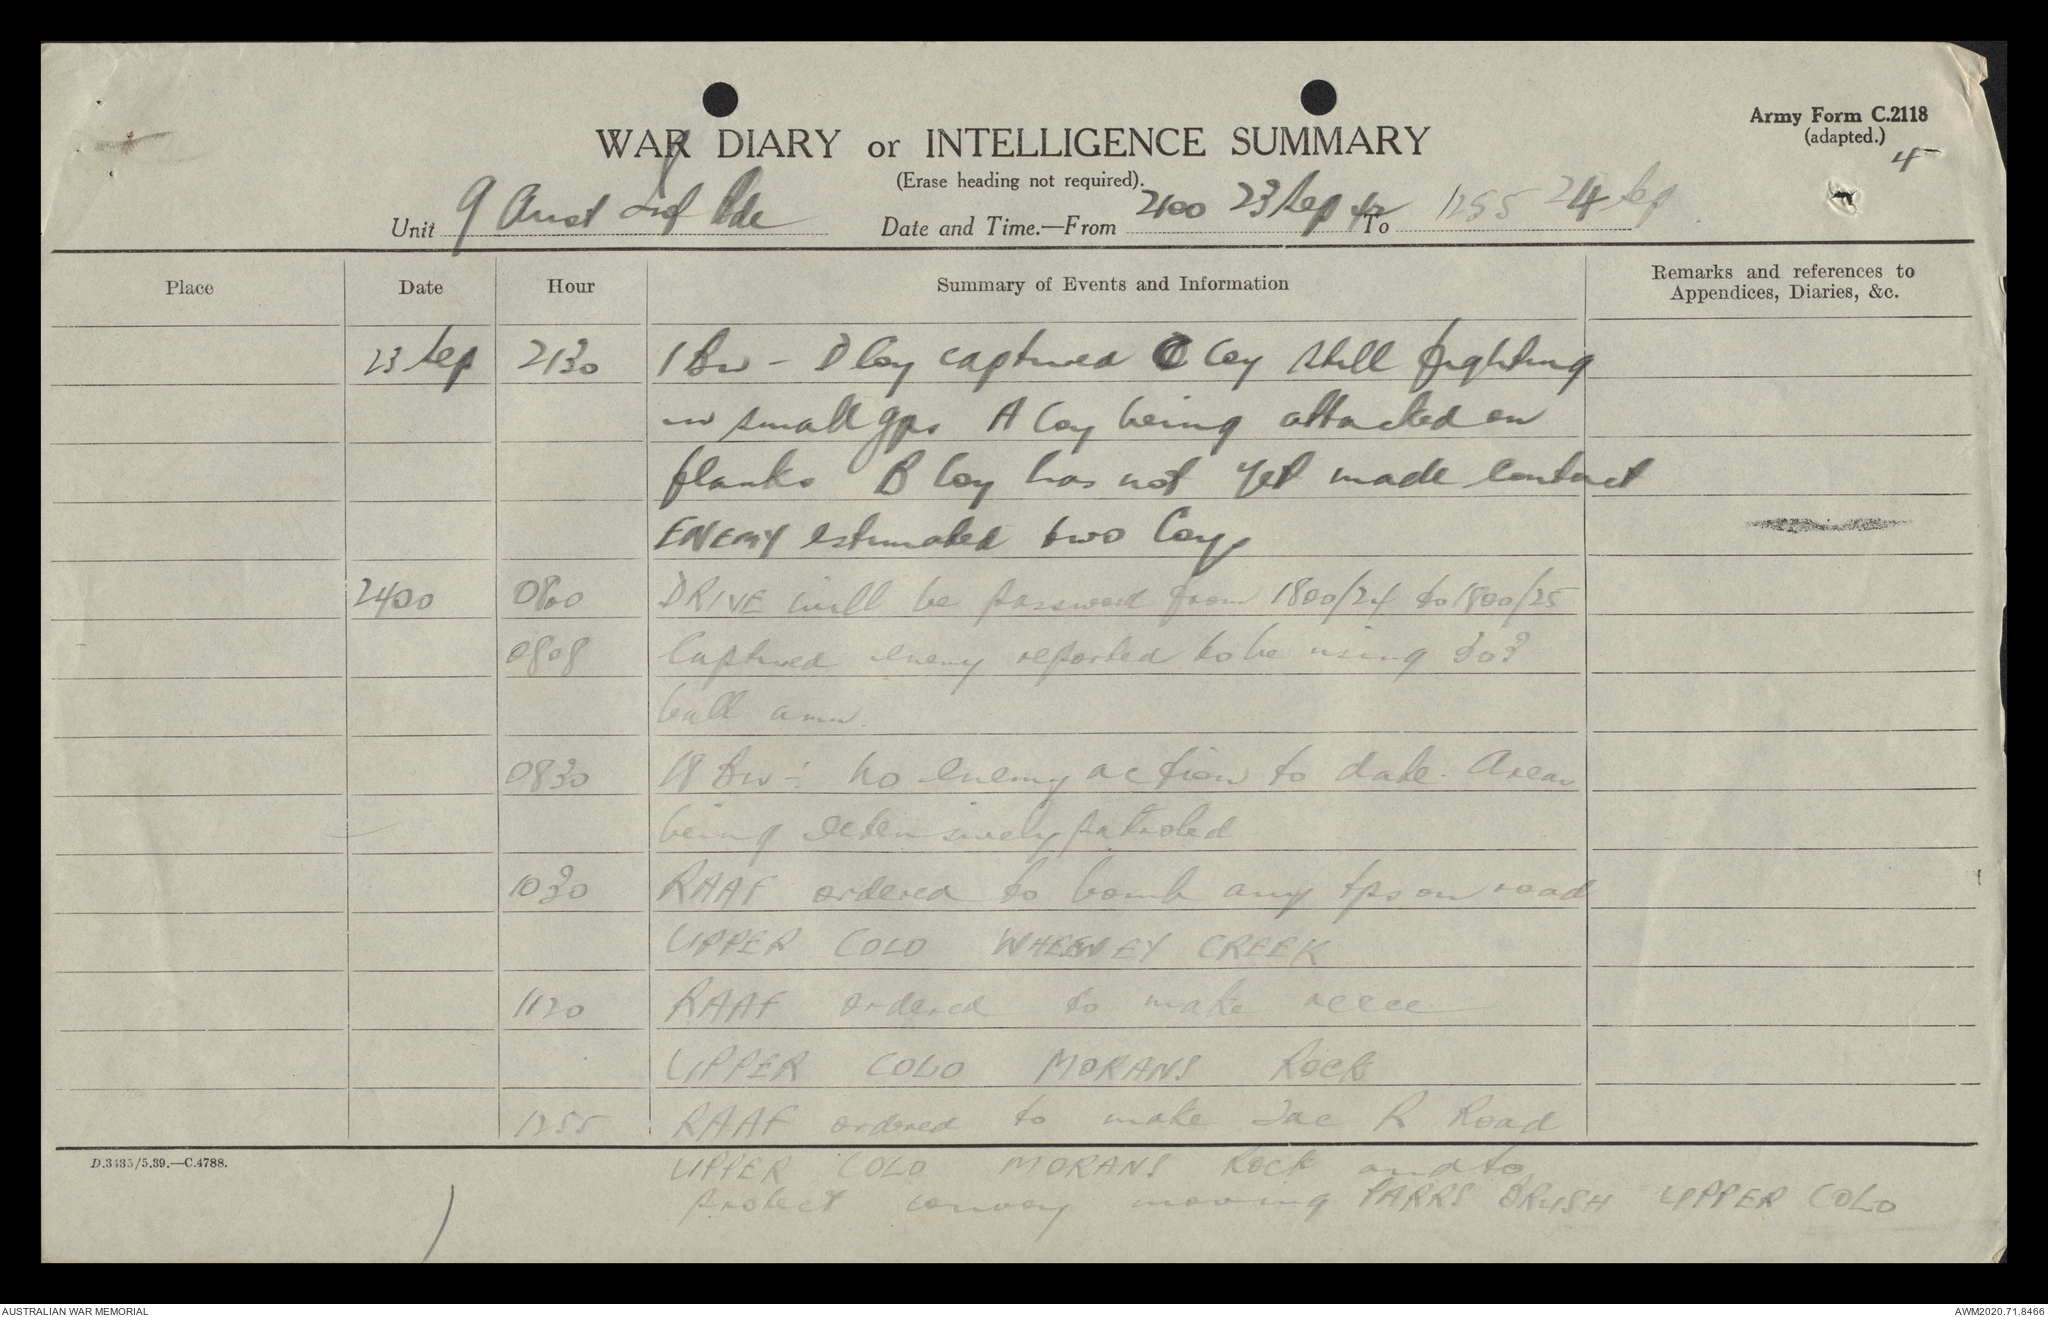 Army Form C.2118
(adapted.)
4
WAR DIARY or INTELLIGENCE SUMMARY
(Erase heading not required).
Unit 9 Aust Inf Bde Date and Time.—From 2100 23 Sep 42 To 1255 24 Sep
Place Date Hour Summary of Events and Information Remarks and references to
Appendices, Diaries, &c.
23 Sep 2130 1 Bn - D Coy captured C Coy still fighting
in small gps A Coy being attacked on
flanks B Coy has not yet made contact
ENEMY estimated two Coys
2400 0800 DRIVE will be password from 1800/24 to 1800/25
0808 Captured enemy reported to be using 303
ball amn.
0830 18 Bn :- No enemy action to date. Area
being extensively patroled
1030 RAAF ordered to bomb any tps on road
UPPER COLO WHEENEY CREEK
1120 RAAF ordered to make recce
UPPER COLO MORANS ROCK
1255 RAAF ordered to make Tac R Road
D.3435/5.39.—C.4788.
UPPER COLO MORANS ROCK and to
protect convoy moving PARRS BRUSH UPPER COLO
AUSTRALIAN WAR MEMORIAL AWM2020.71.8466